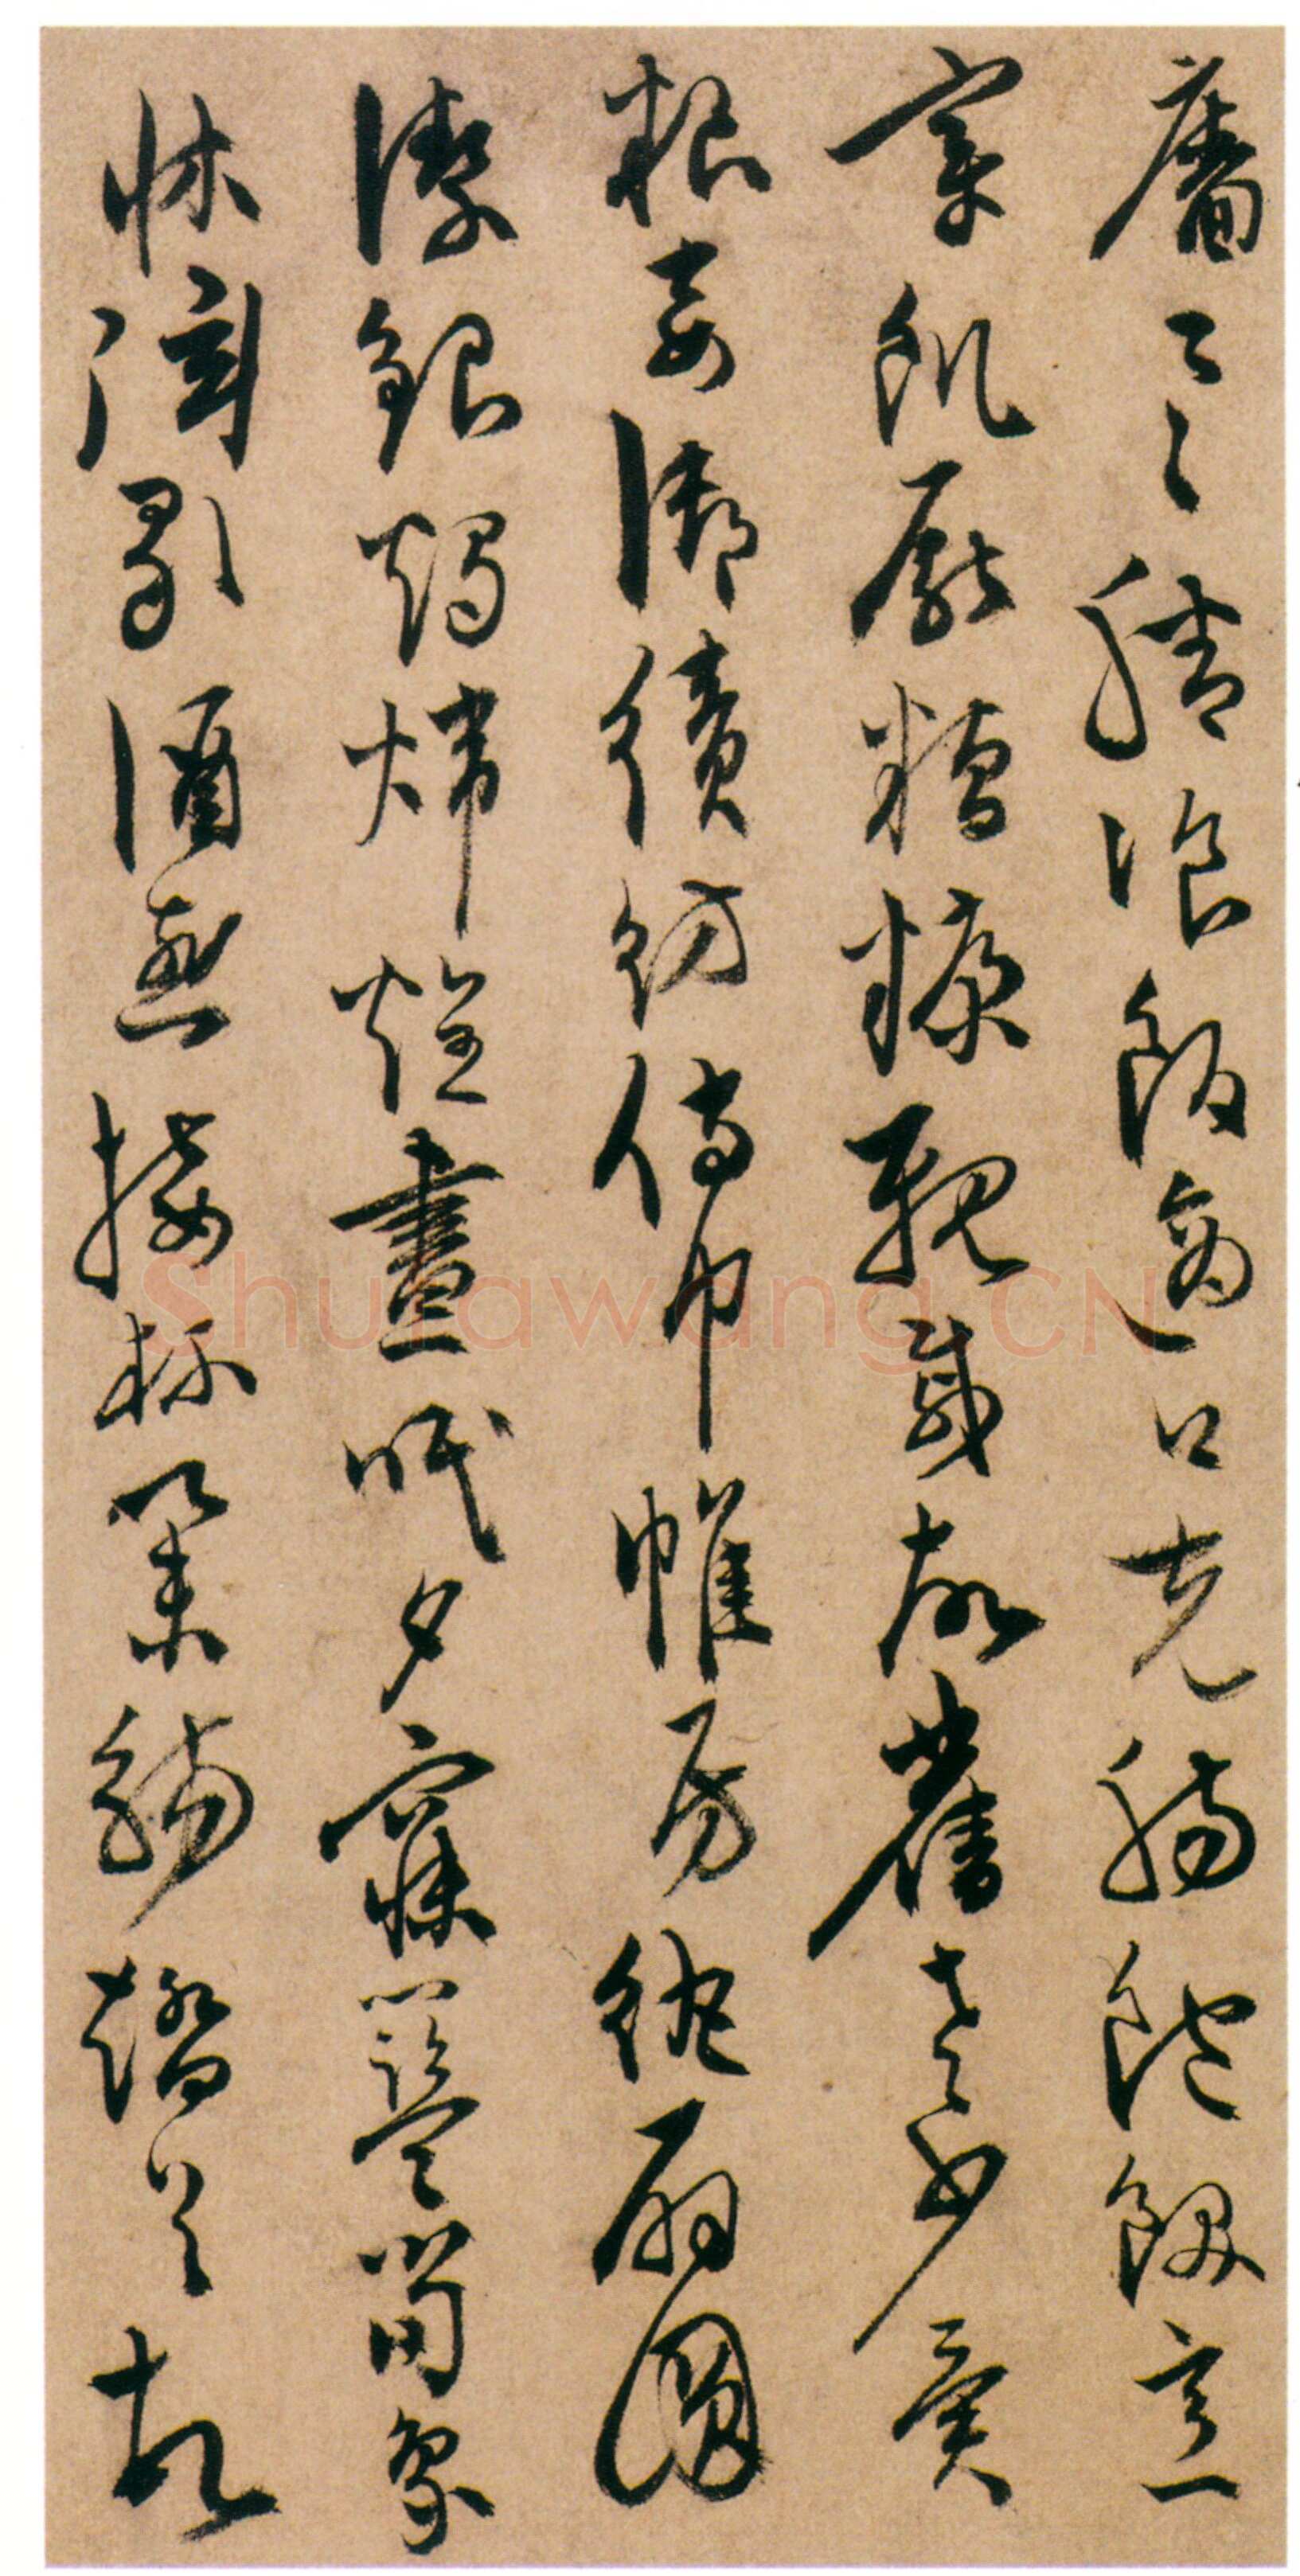 牆具膳飡飯適口充腸飽飫烹
宰飢厭糟糠親戚故舊老少異
粮妾御績紡侍巾帷房紈扇圓
潔銀燭煒煌晝眠夕寐藍笋象
床弦歌酒讌接杯舉觴矯手頓
Shufawang.CN